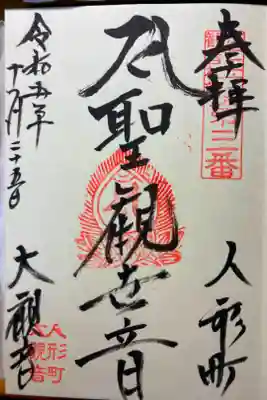 奉拝
三番
人形町
聖觀世音
令和五年
月二十五日
大観音
人形町
大観音